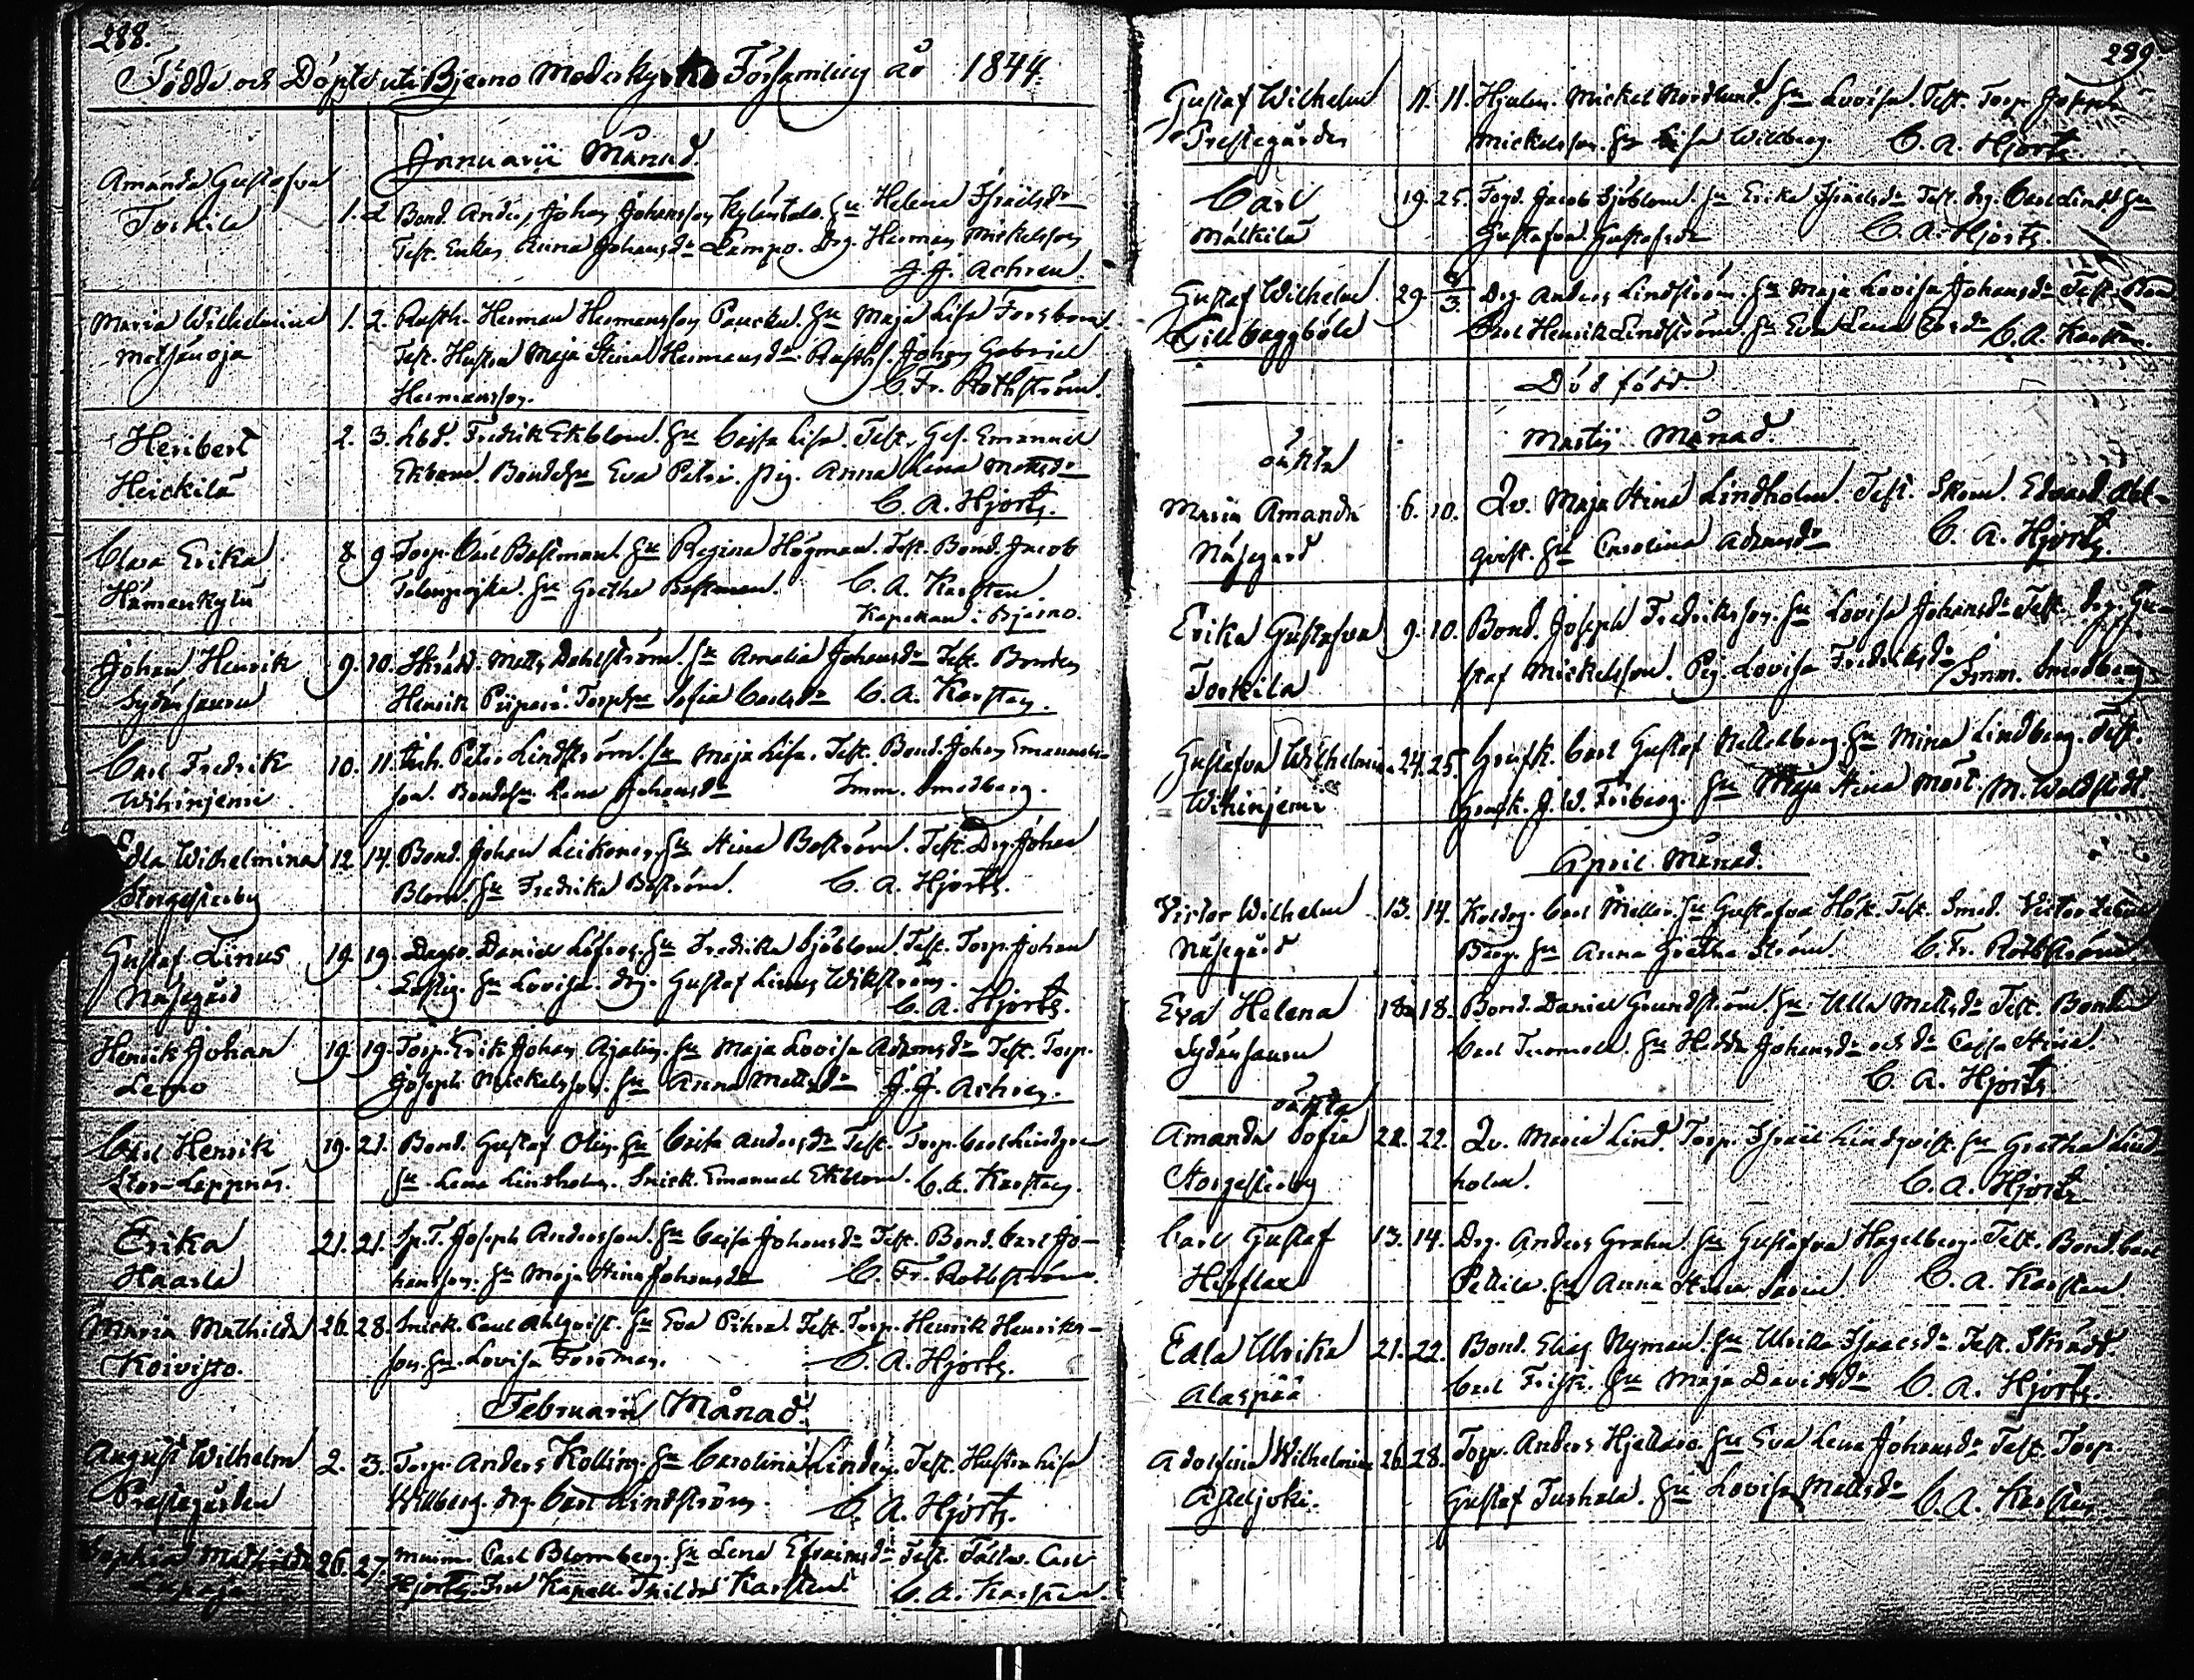 288.
Födde och Döpte uti Bjerno Moderkyrko Församling år 1844.
Januarii Månad.
Amanda Gustafva
Torkila
1. 2. Bond. Anders Johan Johansson Kyläntalo. Hu Helena Israelsdr
Test. Enkan Anna Johansdr Lempo. Drg. Herman Mickelsson
J. J. Achren.
Maria Wilhelmina
Metsänoja
1. 2. Rusth. Herman Hermansson Pancku. Hu Maja Lisa Forsbom.
Test. Hustru Maja Stina Hermansdr Rusths. Johan Gabriel
Hermansson. C. Fr. Rothström.
Heribert
Heickilä
2. 3. Lbd. Fredrik Ekblom. Hu Cajsa Lisa. Test. Ges. Emanuel
Ekbom. Bondehu Eva Petri. pig. Anna Lena Mattsdr
C. A. Hjorth.
Clara Erika
Hämenkylä
8. 9. Torp. Carl Bastman. Hu Regina Högman. Test. Bond. Jacob
Talonpojka. Hu Gretha Bastman. C. A. Karsten.
Kapellan i Bjerno.
Johan Henrik
Sydänsauru
9. 10. Skrädd. Matts Dahlström. Hu Amalia Johansdr Test. Bonden
Henrik Piipari. Torphu Sofia Carlsdr C. A. Karsten.
Carl Fredrik
Wihiniemi
10. 11. Inh. Petter Lindström. Hu Maja Lisa. Test. Bond. Johan Emanuels-
son. Bondehu Lena Johansdr Imm. Smedberg.
Edla Wilhelmina
Storgesterby
12. 14. Bond. Johan Leikoner. Hu Stina Boström. Test. Drg. Johan
Blom. Hu Fredrika Boström. C. A. Hjorth.
Gustaf Linus
Näsegård
19. 19. Dagsv. Daniel Löfros. Hu Fredrika Sjöblom. Test. Torp. Johan
Hu Lovisa. drg. Gustaf Linus Wikström.
C. A. Hjorth.
Henrik Johan
Lemo
19. 19. Torp. Erik Johan Ajalin. Hu Maja Lovisa Adamsdr Test. Torp.
Joseph Mickelsson. Hu Anna Mattsdr J. J. Achren.
Carl Henrik
Stor-Leppnäs.
19. 21. Bond. Gustaf Olin. Hu Caisa Andersdr Test. Torp. Carl Lindgren
Hu Lena Lindholm. Snick. Emanuel Ekblom. C. A. Karsten.
Erika
Haarla
21. 21. Sp.T. Joseph Andersson. Hu Caisa Johansdr Test. Bond. Carl Jo-
hansson. Hu Maja Stina Johansdr C. Fr. Rothström.
Maria Mathilda
Koivisto.
26. 28. Snick. Paul Ahlqvist. Hu Eva Pihra. Test. Torp. Henrik Henriks-
son. Hu Lovisa Forsman. C. A. Hjorth.
Februarii Månad.
August Wilhelm
Prestegården
2. 3. Torp. Anders Kolling. Hu Carolina Lindén. Test. Hustru Lisa
Willberg. drg. Carl Lindström. C. A. Hjorth.
Sophia Mathilda
Lupaja
26. 27. Murm. Carl Blomberg. Hu Lena Efraimsdr Test. Carl
Hjorth. Fru Kapell. Thilda Karsten. C. A. Karsten.
289.
Gustaf Wilhelm
Prestegården
11. 11. Hjulm. Mickel Nordlund. Hu Lovisa. Test. Torp. Joseph
Mickelsson. Hu Lisa Willberg. C. A. Hjorth.
Carl
Mälkilä
19. 25. Fogd. Jacob Sjöblom. Hu Erika Israelsdr Test. drg. Carl Lind. Hu
Gustafva Gustafsdr C. A. Hjorth.
Gustaf Wilhelm
Lillbaggböle
29. 3. Drg. Anders Lindström. Hu Maja Lovisa Johansdr Test. Bon
Carl Henrik Lindström. Hu Eva Lena C. A. Karsten.
Död född.
Martii Månad.
oäkta
Maria Amanda
Näsegård
6. 10. Qv. Maja Stina Lindholm. Test. Skom. Edvard Ahl-
qvist. Hu Carolina Adamsdr C. A. Hjorth.
Erika Gustafva
Torkila
9. 10. Bond. Joseph Fredriksson. Hu Lovisa Johansdr Test. Drg. Gu-
staf Mickelsson. Pig. Lovisa Fredriksdr Imm. Smedberg
Gustafva Wilhelmina
Wihiniemi
24. 25. Carl Gustaf Nettelberg. Hu Mina Lindberg. Test.
J. W. Friberg. Hu Maja Stina Mört. M. Waldstedt.
April Månad.
Victor Wilhelm
Näsegård
13. 14. Koldrg. Carl Miller. Hu Gustafva Hök. Test. Smed. Victor
Berg. Hu Anna Gretha Ström. C. Fr. Rothström.
Eva Helena
Sydänsauru
18. 18. Bond. Daniel Grundström. Hu Ulla Mattsdr Test. Bonden
Carl Tuomola. Hu Hedda Johansdr och dr Cajsa Stina.
C. A. Hjorth.
oäkta
Amanda Sofia
Storgesterby
22. 22. Qv. Maria Lind. Torp. Israel Lindqvist. Hu Gretha Lind-
holm. C. A. Hjorth
Carl Gustaf
13. 14. Drg. Anders Grahn. Hu Gustafva Hagelberg. Test. Bond. Carl
Pellila. Hu Anna Stina Savin. C. A. Karsten
Edla Ulrika
Alaspää
21. 22. Bond. Elias Nyman. Hu Ulrika Isaacsdr Test. Skrädd.
Carl Frisk. Hu Maja Davidsdr C. A. Hjorth.
Adolfina Wilhelmina
Asteljoki.
26. 28. Torp. Anders Hjeltaro. Hu Eva Lena Johansdr Test. Torp.
Gustaf Tuohola. Hu Lovisa Mattsdr C. A. Karsten